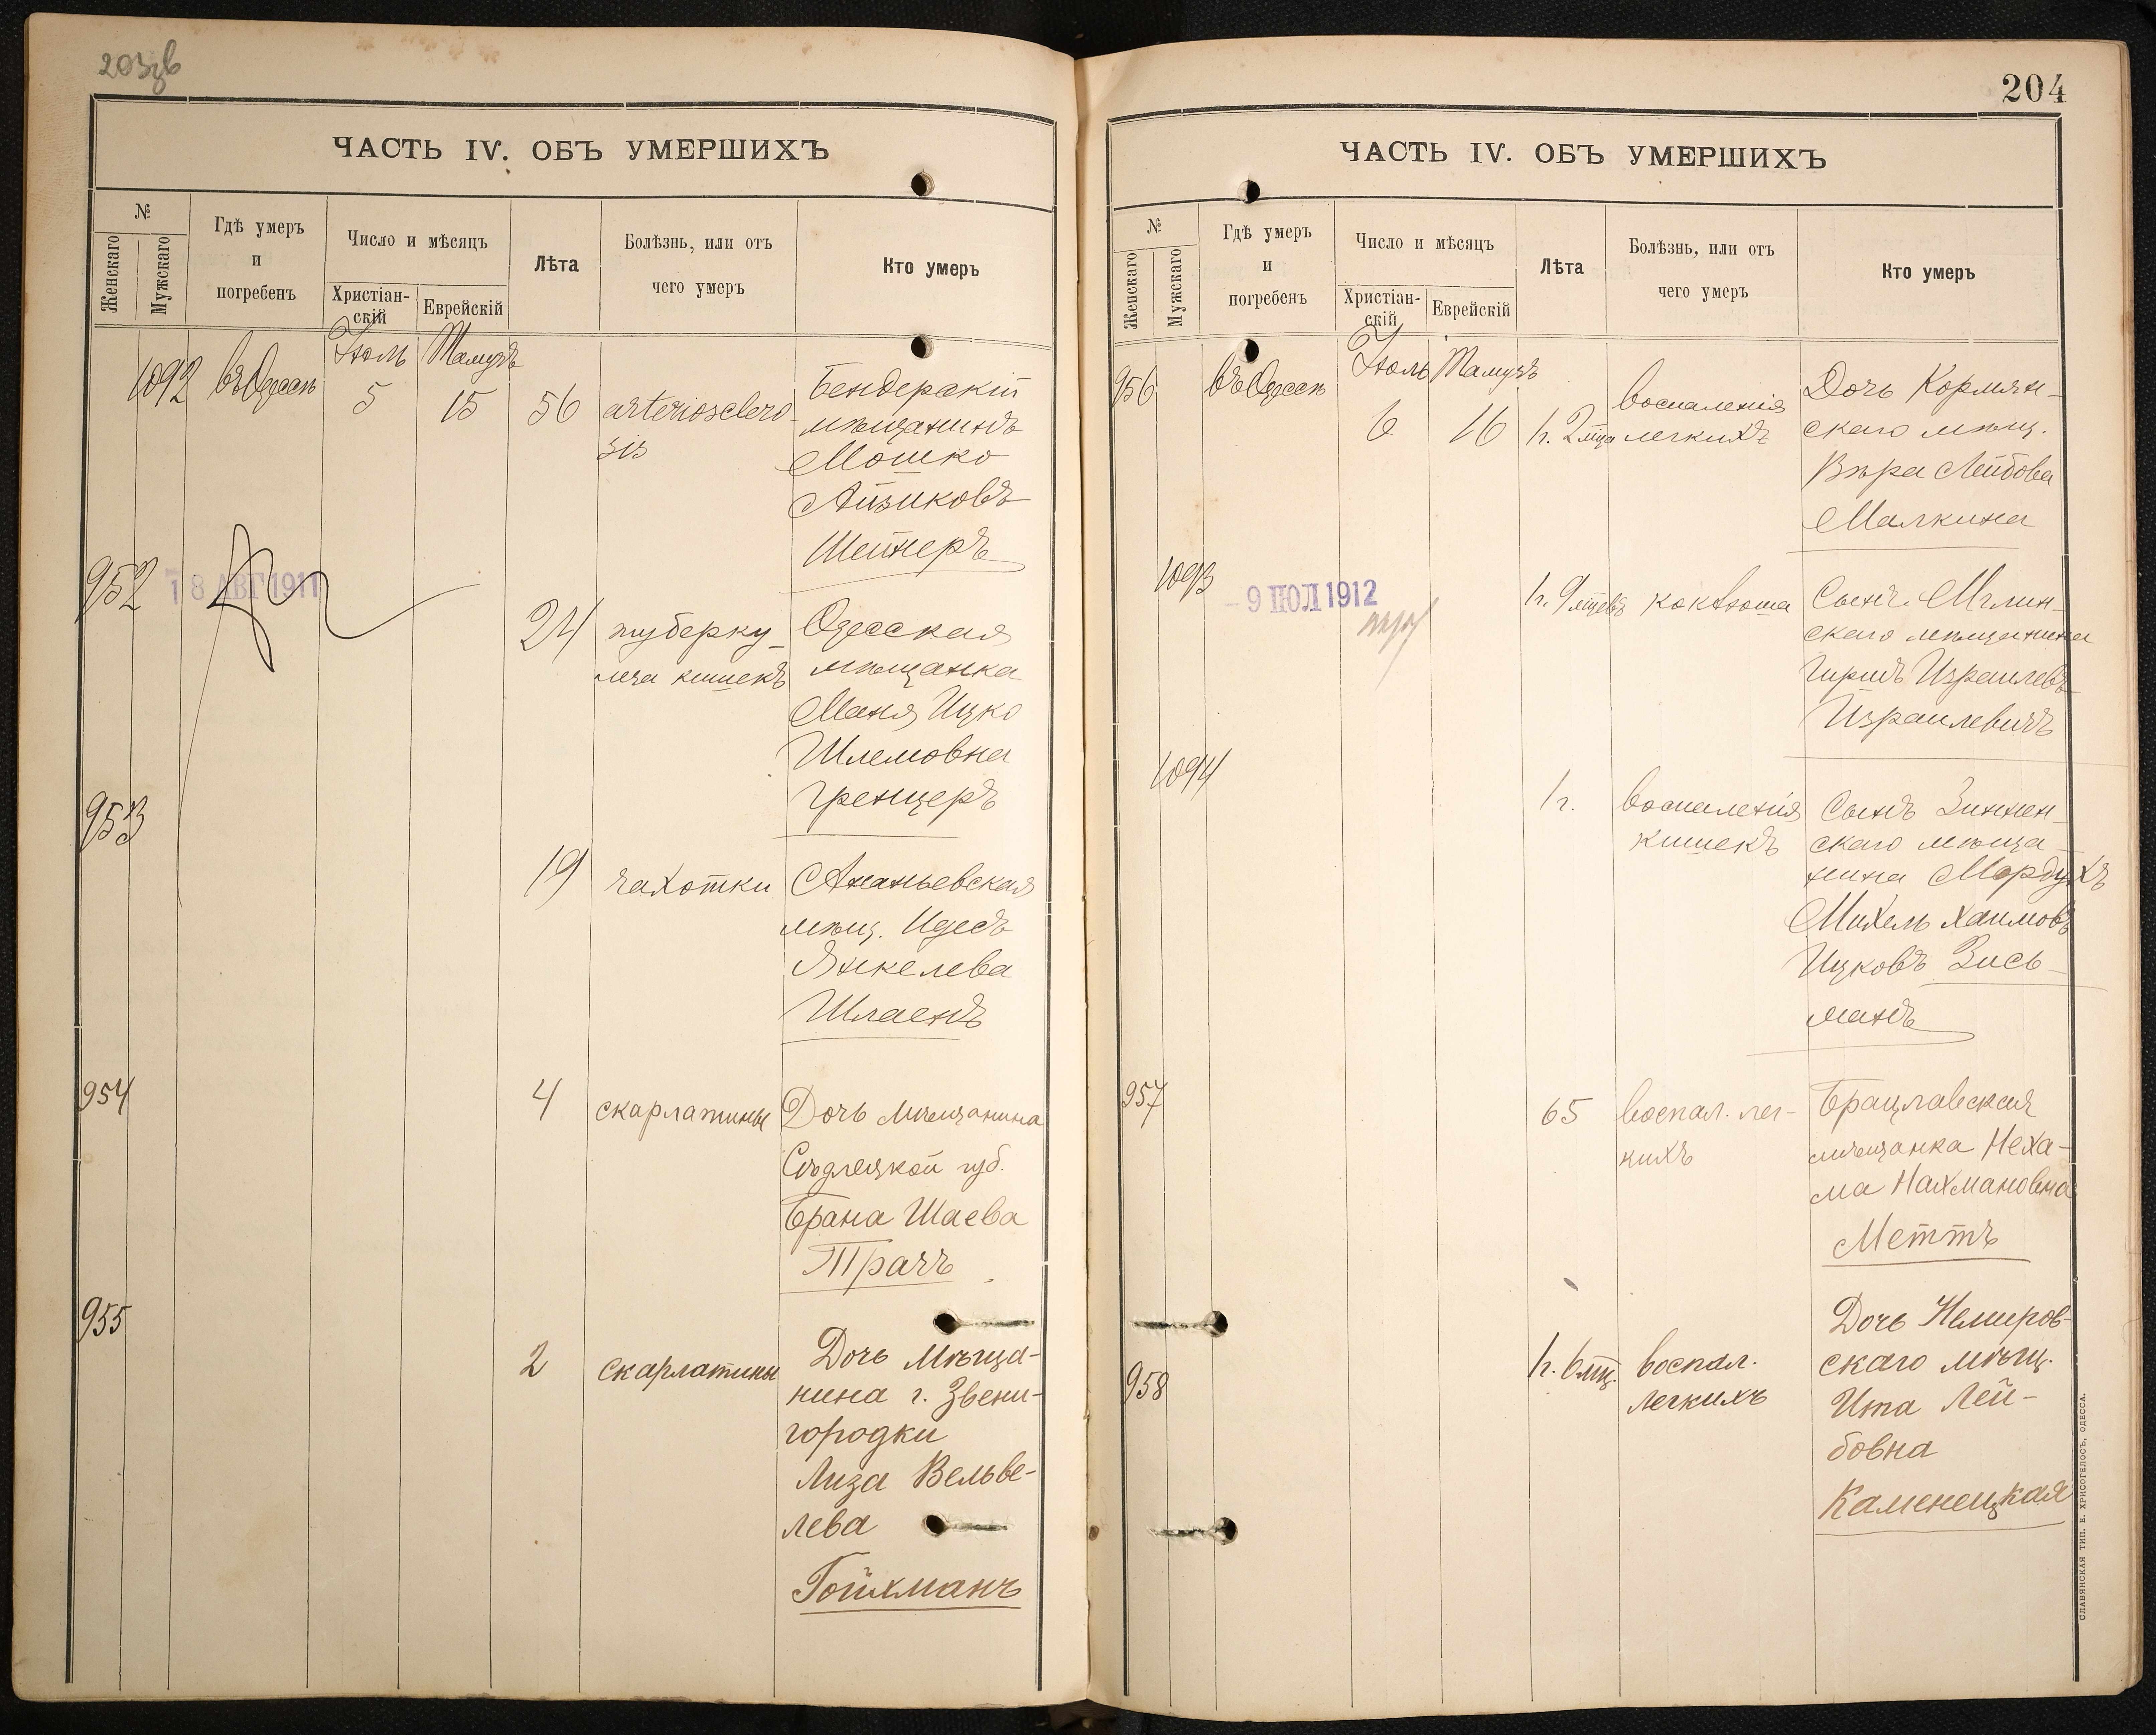 203 зв
ЧАСТЬ IV. ОБЪ УМЕРШИХЪ
№
Женскаго
Мужскаго
Гдѣ умеръ
и
погребенъ
Число и мѣсяцъ
Христіан-
скій
Еврейскій
Лѣта
Болѣзнь, или отъ
чего умеръ
Кто умеръ
Іюль Тамузъ
1092 въ Одессѣ 5 15 56 arterioscléro-
sis
Бендерскій
мѣщанинъ
Мошко
Айзиковъ
Шейнеръ
952
18 АВГ 1911
24 туберку-
леза кишекъ
Одесская
мѣщанка
Маня Ицко
Шлемовна
Гренцеръ
953
19 чахотки
Ананьевская
мѣщ. Идесъ
Янкелева
Шлаенъ
954
4 скарлатины
Дочь мѣщанина
Сѣдлецкой губ.
Брана Шаева
Трачъ
955
2 скарлатины
Дочь мѣща-
нина г. Звени-
городки
Лиза Вельве-
лева
Гойхманъ
204
ЧАСТЬ IV. ОБЪ УМЕРШИХЪ
№
Женскаго
Мужскаго
Гдѣ умеръ
и
погребенъ
Число и мѣсяцъ
Христіан-
скій
Еврейскій
Лѣта
Болѣзнь, или отъ
чего умеръ
Кто умеръ
Іюль Тамузъ
956 въ Одессѣ 6 16 1 г. 2 мца
воспаленія
легкихъ
Дочь Кормян-
скаго мѣщ.
Вѣра Лейбова
Малкина
1093
- 9 ІЮЛ 1912
1 г. 9 мцевъ коклюша
Сынъ Мглин-
скаго мѣщанина
Гиршъ Израилевъ
Израилевичъ
1094
1 г. воспаленія
кишекъ
Сынъ Зиннен-
скаго мѣща-
нина Мордухъ
Михель Хаимовъ
Ицковъ Зись-
манъ
957
65 воспал. лег-
кихъ
Брацлавская
мѣщанка Неха-
ма Нахмановна
Меттъ
958
1 г. 6 мц. воспал.
легкихъ
Дочь Немиров-
скаго мѣщ.
Ита Лей-
бовна
Каменецкая
СЛАВЯНСКАЯ ТИП. Е. ХРИСОГЕЛОСЪ, ОДЕССА.